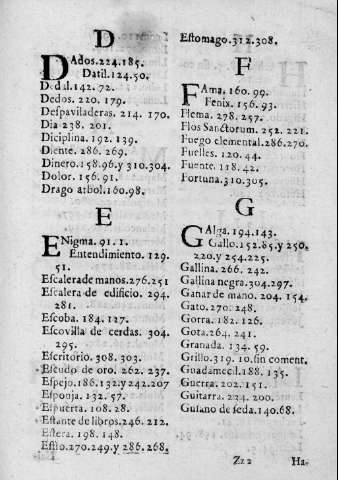 D
DAdos.224.185.
Datil.124.50.
Dedal.142.72.
Dedos. 220. 179.
Despaviladeras. 214. 170.
Dia 238. 201.
Diciplina. 192. 139.
Diente. 286. 269.
Dinero. 158.96.y 310.304.
Dolor. 156. 91.
Drago arbol.160.98.
E
ENigma. 91. 1.
Entendimiento. 129.
51.
Escalera de manos.276.251
Escalera de edificio. 294.
281.
Escoba. 184. 127.
Escovilla de cerdas. 304.
295.
Escritorio. 308. 303.
Escudo de oro. 262. 237.
Espejo.186.132.y 242.207
Esponja. 132. 57.
Espuerta. 108. 28.
Estante de libros.246. 212.
Estera. 198. 148.
Estio.270.249.y 286.268.
Estomago.312.308.
F
FAma. 160. 99.
Fenix. 156. 93.
Flema. 278. 257.
Flos Sanctorum. 252. 221.
Fuego elemental.286.270.
Fuelles. 120. 44.
Fuente. 118. 42.
Fortuna.310.305.
G
GAlga. 194.143.
Gallo.152.85.y 250.
220.y 254.225.
Gallina. 266. 242.
Gallina negra.304.297.
Ganar de mano. 204. 154.
Gato. 270. 248.
Gorra. 182. 126.
Gota.264. 241.
Granada. 134. 59.
Grillo.319. 10.sin coment.
Guadamecil.188. 135.
Guerra. 202. 151.
Guitarra. 224. 200.
Gusano de seda.140.68.
Zz 2 Ha-